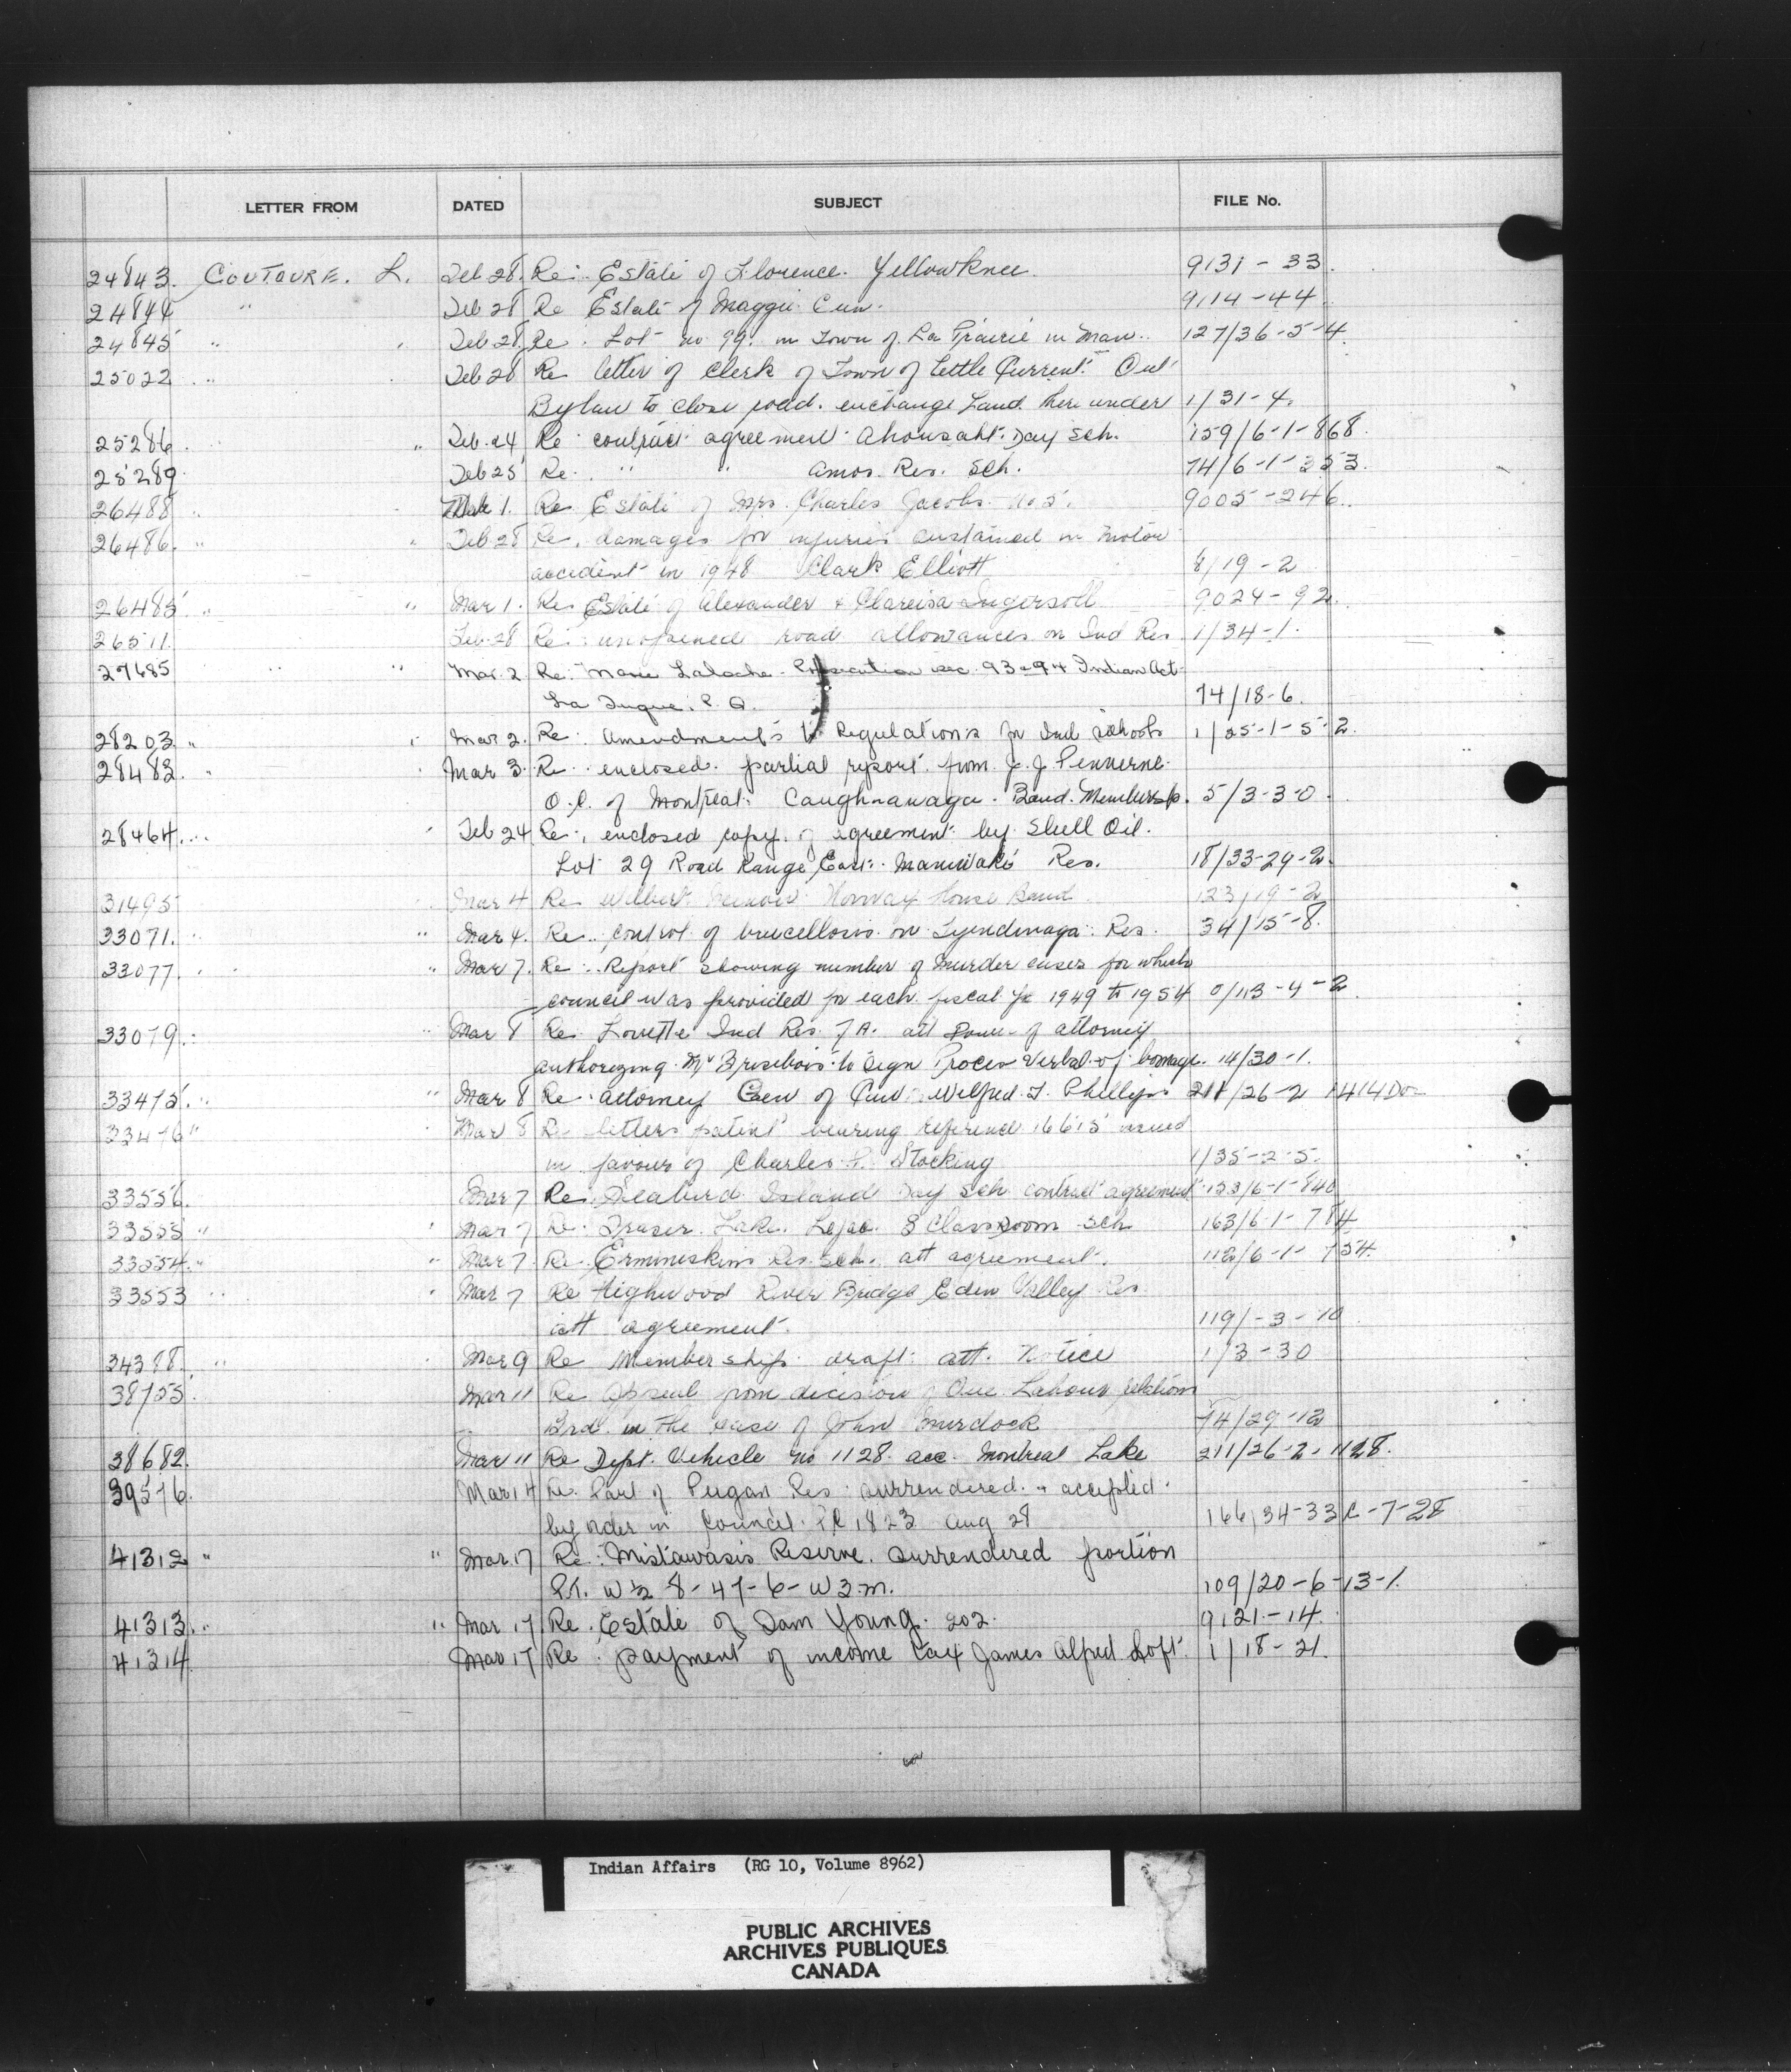 LETTER FROM DATED SUBJECT FILE No.
24843. COUTOURE. L. Feb 28. Re: Estate of Florence. Yellowknee. 9131 - 33.
24844 " Feb 28 Re Estate of Maggie 9114 - 44
24845 " " Feb 28. Re. Lot no 99. in Town of La Prairie in Man.. 127/36-5-4.
25022 " Feb 28 Re letter of Clerk of Town of Little Current Ont
Bylaw to close road. exchange Land there under 1/31-4.
25286. " Feb. 24 Re contract agreement Ahousaht. Day Sch. 159/6-1-868.
25289 Feb 25 Re. " " Amos. Res. Sch. 74/6-1-353.
26488 " Mar 1. Re Estate of Mrs. Charles Jacobs. No 5. 9005-246.
26486. " " Feb 28 Re. damages for injuries sustained in motor
accident in 1948 Clark Elliott 8/19-2
26485 " " Mar 1. Re Estate of Alexander & Clareisa Ingersoll 9024-92.
26511. Feb. 28 Re: unopened road allowances on Ind Res 1/34-1.
27685 " " Mar. 2 Re: Marie Laloche. sec. 93-94 Indian Act
La Tuque. P.Q. 74/18-6.
28203. " " Mar 2. Re: Amendments to Regulations for Ind Schools 1/25-1-5-2.
28482. " Mar 3. Re enclosed. partial report. from J. J. Pennerne.
Q.C. of Montreal: Caughnawaga. Band. Membership. 5/3-3-0.
28464. " Feb 24 Re: enclosed copy. of agreement by Shell Oil.
Lot 29 Road Range East. Maniwaki Res. 18/33-29-2.
31495 Mar 4 Re Norway House Band 123/19-2
33071. " " Mar 4. Re. control of brucellosis on Tyendinaga Res. 34/15-8.
33077. " " Mar 7. Re: Report showing number of murder cases for which
council was provided for each fiscal yr 1949 to 1954 0/113-4-2.
33079. " Mar 8 Re Lorette Ind Res. 7A. att Power of attorney
authorizing Mr Brisebois to sign Proces Verbal of bornage. 14/30-1.
33475. " " Mar 8 Re attorney Gen of Can Wilfred J. Phillips 211/26-2 1414
33476 " Mar 8 Re letters patent bearing reference 16615 issued
in favour of Charles Stocking 1/35-2-5.
33556. Mar 7 Re: Seabird Island Day Sch contract agreement 153/6-1-840
33555 " " Mar 7 Re. Fraser Lake. Lejac. 8 Classroom Sch 163/6-1-784
33554. " " Mar 7. Re. Ermineskins Res. Sch. att agreement. 112/6-1-754.
33553 " " Mar 7 Re Highwood River Bridge Eden Valley Res.
att agreement. 119/-3-10
34388. " Mar 9 Re Membership draft att. Notice 1/3-30
38755. Mar 11 Re Appeal from decision of Que. Labour relations
Brd. in the case of John Murdock 74/29-12
38682. Mar 11 Re Dept. Vehicle no 1128. acc. Montreal Lake 211/26-2-1128.
39576. Mar 14 Re. Part of Peigan Res surrendered. & accepted
by order in Council. PC 1823 Aug 28 166/34-33C-7-28
41312 " " Mar. 17 Re: Mistawasis Reserve. surrendered portion
Pt. W ½ 8-47-6-W3.m. 109/20-6-13-1.
41313. " " Mar 17 Re. Estate of Sam Young. 202. 9121-14.
41314 Mar 17 Re. payment of income tax James Alfred Loft 1/18-21.
Indian Affairs (RG 10, Volume 8962)
PUBLIC ARCHIVES
ARCHIVES PUBLIQUES
CANADA